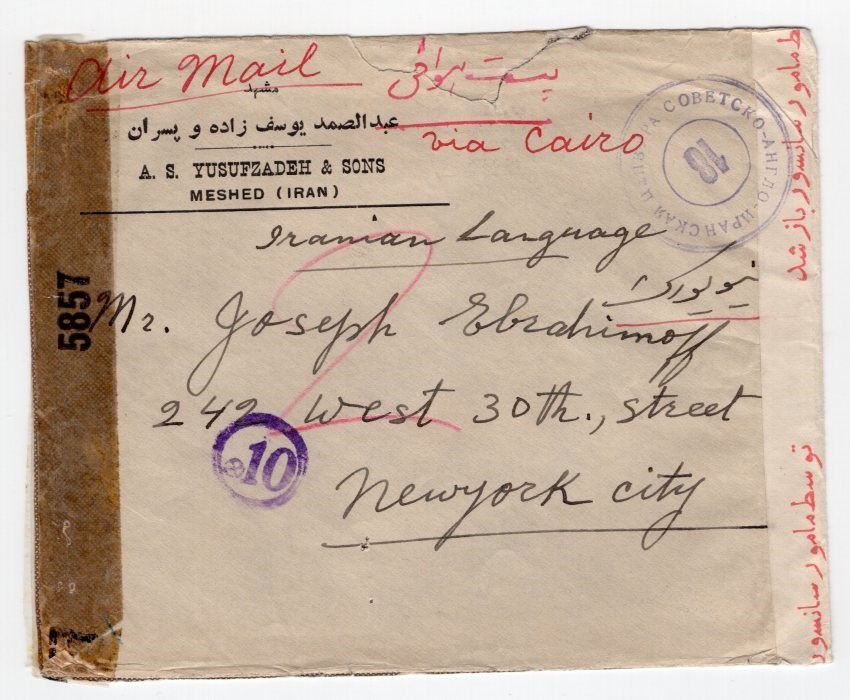 Air Mail
پست هوائی
مشهد
عبدالصمد یوسف زاده و پسران
A. S. YUSUFZADEH & SONS
MESHED (IRAN)
via Cairo
СОВЕТСКО-АНГЛО-ИРАНСКАЯ ЦЕНЗУРА
18
Iranian Language
نیویورک
Mr. Joseph Ebrahimoff
242 West 30th., street
Newyork city
10
5857
توسط مامور سانسور باز شد
توسط مامور سانسور